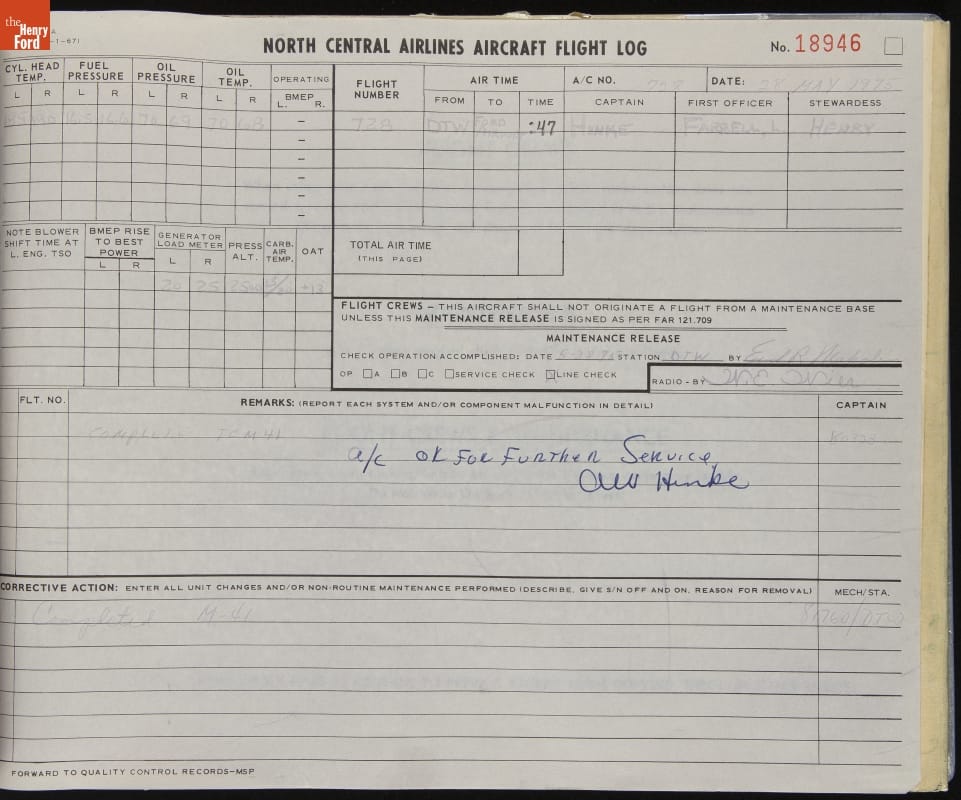 the Henry Ford
-1-671
NORTH CENTRAL AIRLINES AIRCRAFT FLIGHT LOG
No. 18946
CYL. HEAD TEMP. FUEL PRESSURE OIL PRESSURE OIL TEMP. OPERATING
L R L R L R L R BMEP L. R.
FLIGHT NUMBER AIR TIME A/C NO. DATE: 28 MAY 1975
FROM TO TIME CAPTAIN FIRST OFFICER STEWARDESS
728 DTW FORD :47 HINKE FARRELL, L HENRY
70 68 –
–
–
–
–
–
NOTE BLOWER SHIFT TIME AT L. ENG. TSO BMEP RISE TO BEST POWER GENERATOR LOAD METER PRESS ALT. CARB. AIR TEMP. OAT
L R L R
20 25 +13
TOTAL AIR TIME
(THIS PAGE)
FLIGHT CREWS – THIS AIRCRAFT SHALL NOT ORIGINATE A FLIGHT FROM A MAINTENANCE BASE
UNLESS THIS MAINTENANCE RELEASE IS SIGNED AS PER FAR 121.709
MAINTENANCE RELEASE
CHECK OPERATION ACCOMPLISHED: DATE STATION DTW BY
OP A B C SERVICE CHECK LINE CHECK
RADIO – BY
FLT. NO. REMARKS: (REPORT EACH SYSTEM AND/OR COMPONENT MALFUNCTION IN DETAIL) CAPTAIN
M 41
a/c OK FOR FURTHER SERVICE
Hinke
CORRECTIVE ACTION: ENTER ALL UNIT CHANGES AND/OR NON-ROUTINE MAINTENANCE PERFORMED (DESCRIBE, GIVE S/N OFF AND ON, REASON FOR REMOVAL) MECH/STA.
Completed M-41
FORWARD TO QUALITY CONTROL RECORDS–MSP